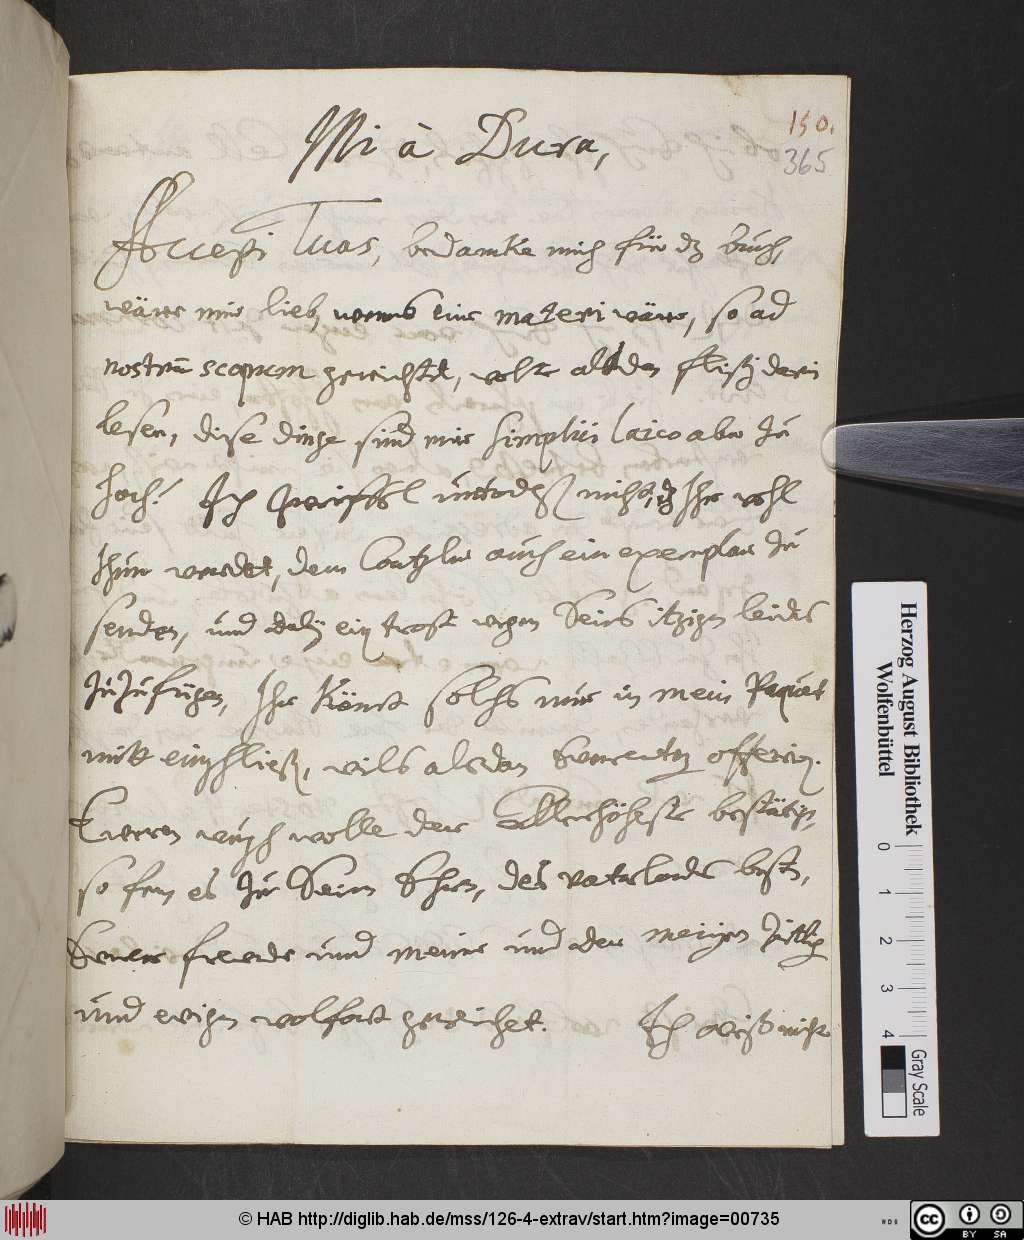 Mi à Dura,
150.
365
Accepi Tuas, bedancke mich für dz buch,
wäre mir lieb, wenns eine materi wäre, so ad
nostrū scopum gerichtet, wolte alsdan fleißig darin
lesen, dise dinge sind mir simplici laico aber zu
hoch! Ich zweiffel unterdeß nicht, dz Ihr wohl
thun werdet, dem Cantzler auch ein exemplar zu
senden, und dabey ein trost wegen Seines itzigen leides
zuzufügen, Ihr könt solchs nur in mein Paquet
mitt einschließen, wils alsdan offeriren.
wunsch wolle der Allerhöhste bestätigen,
so fern es zu Seinen Ehren, des vaterlandes besten,
freunde und meine und der meinigen
und ewigen wolfart gereichet. Ich weiß nicht
Herzog August Bibliothek
Wolfenbüttel
0 1 2 3 4
Gray Scale
© HAB http://diglib.hab.de/mss/126-4-extrav/start.htm?image=00735
cc BY SA